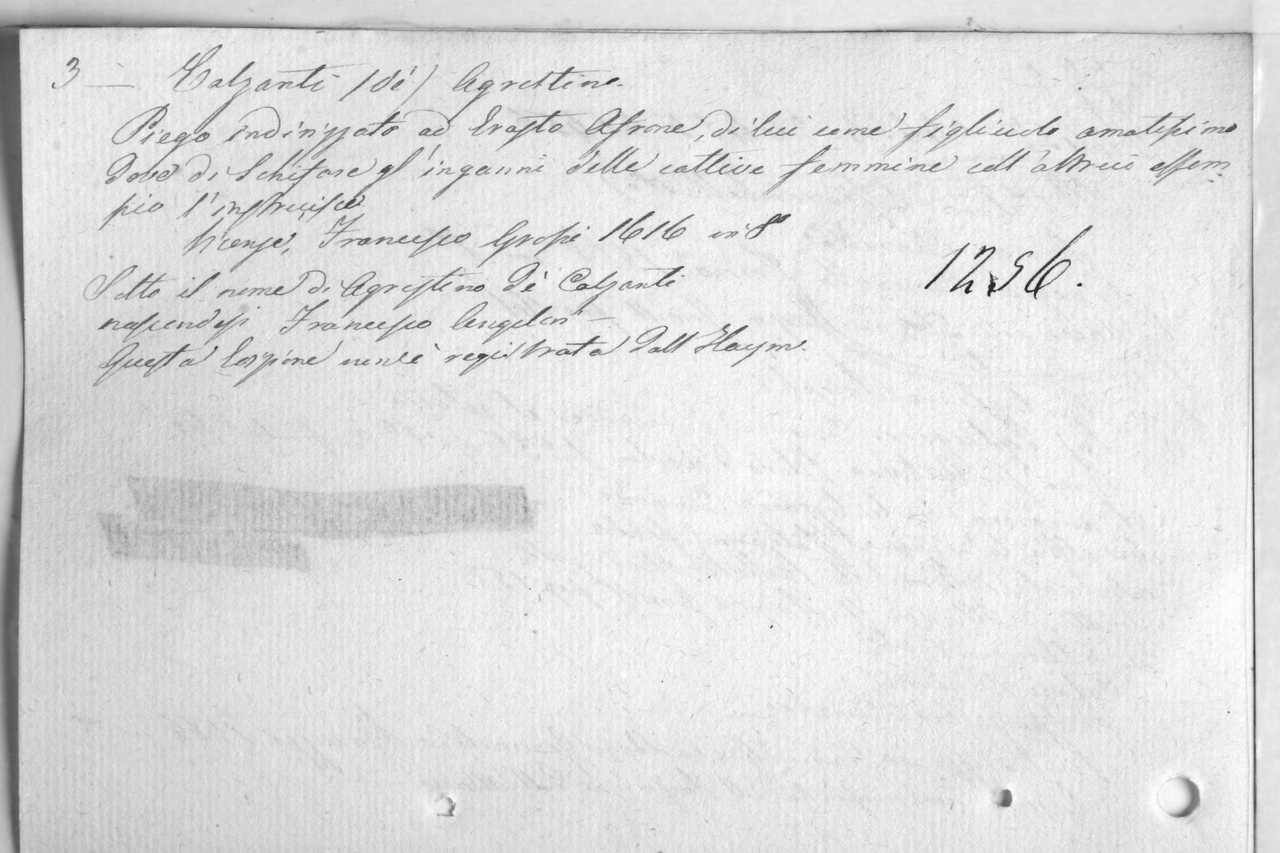 3 — Calzanti (dé) Agrestino.
Piego indirizzato ad Erasto Afrone, di lui come figliuolo amatissimo
dove di Schifare gl'inganni delle cattive femmine coll'altrui essem-
pio l'instruisce
Vicenza, Francesco Grossi 1616 in 8°
1256.
Sotto il nome di Agrestino dé Calzanti
nascondesi Francesco Angelon —
Questa Edizione non è registrata dall'Haym.